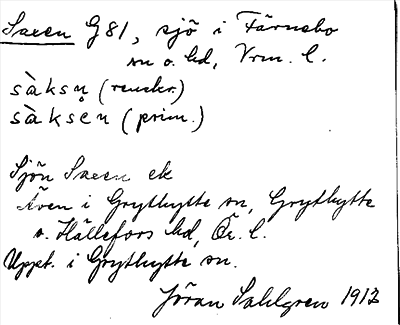 Saxen G81, sjö i Färnebo
sn o. hd, Vrm. l.
sàksn̥ (renskr.)
sàkse̊n (prim.)
Sjön Saxen ek
Även i Grythytte sn, Grythytte
o. Hällefors hd, Ör. l.
Uppt. i Grythytte sn.
Jöran Sahlgren 1913